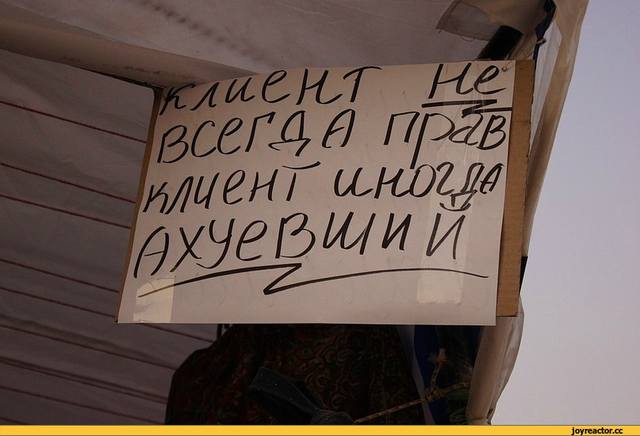 КЛИЕНТ НЕ
ВСЕГДА ПРАВ
КЛИЕНТ ИНОГДА
АХУЕВШИЙ
joyreactor.cc